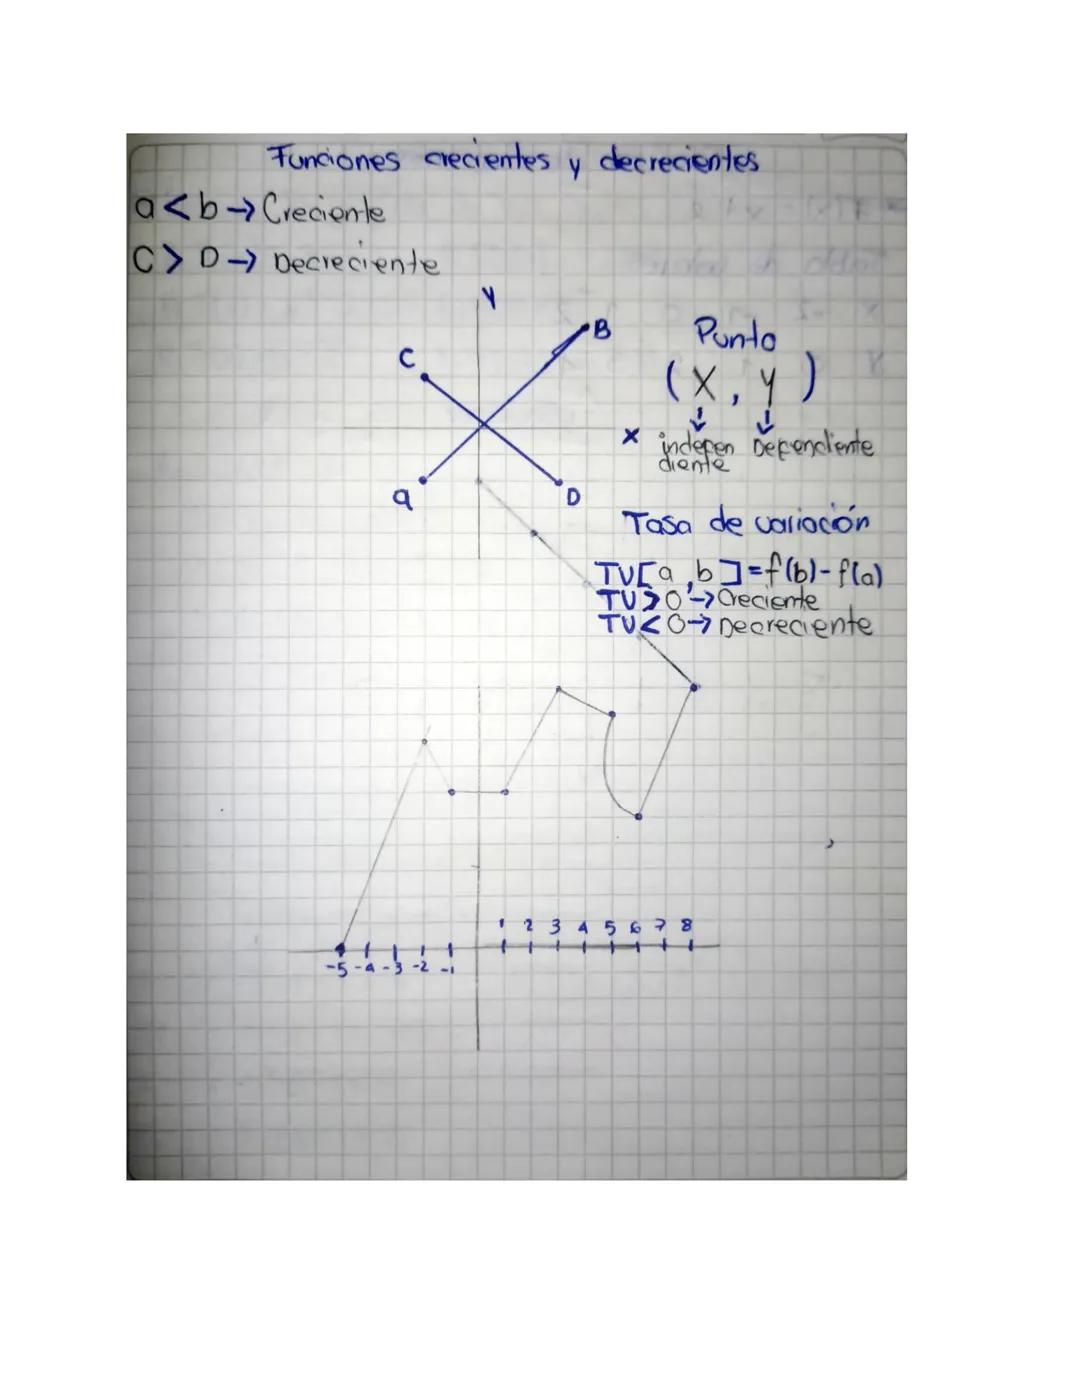 Funciones crecientes y decrecientes
a < b → Creciente
C > D → Decreciente
Y
B
C
Punto
(X, y)
x
indepen
diente
Dependiente
a
D
Tasa de variación
TV[a,b]=f(b)-f(a)
TV>0→Creciente
TV<0→Decreciente
1 2 3 4 5 6 7 8
-5 -4 -3 -2 -1